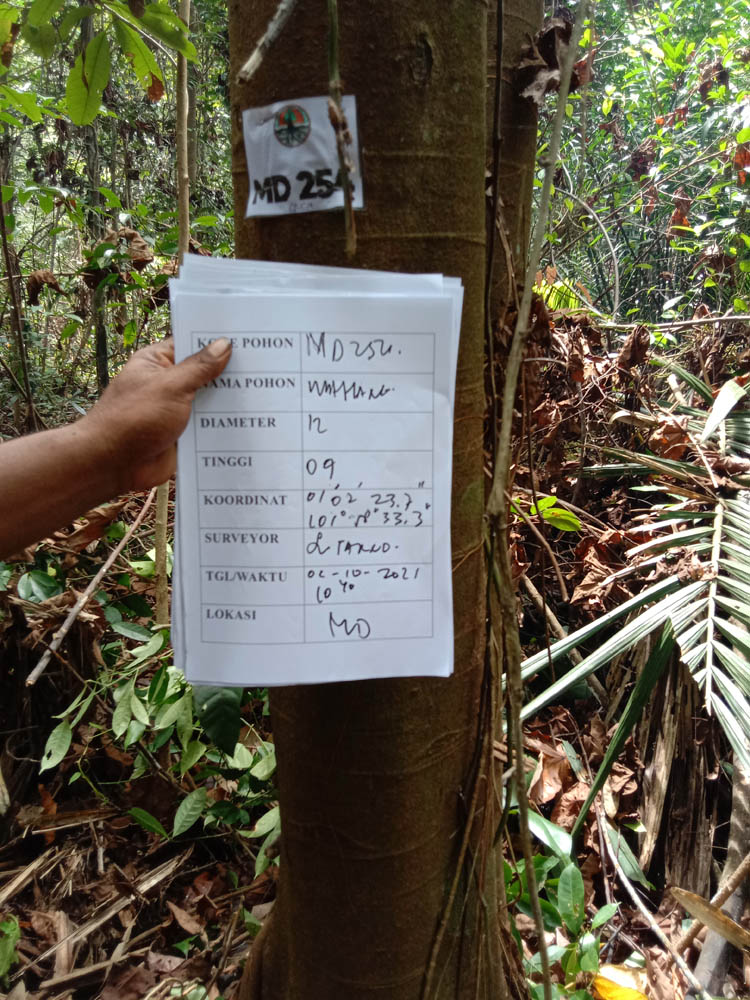 MD 254
KODE POHON MD254.
NAMA POHON
DIAMETER 12
TINGGI 09
KOORDINAT 01° 02' 23.7"
101° 33.3"
SURVEYOR TARNO.
TGL/WAKTU 02-10-2021
10⁴⁰
LOKASI MD